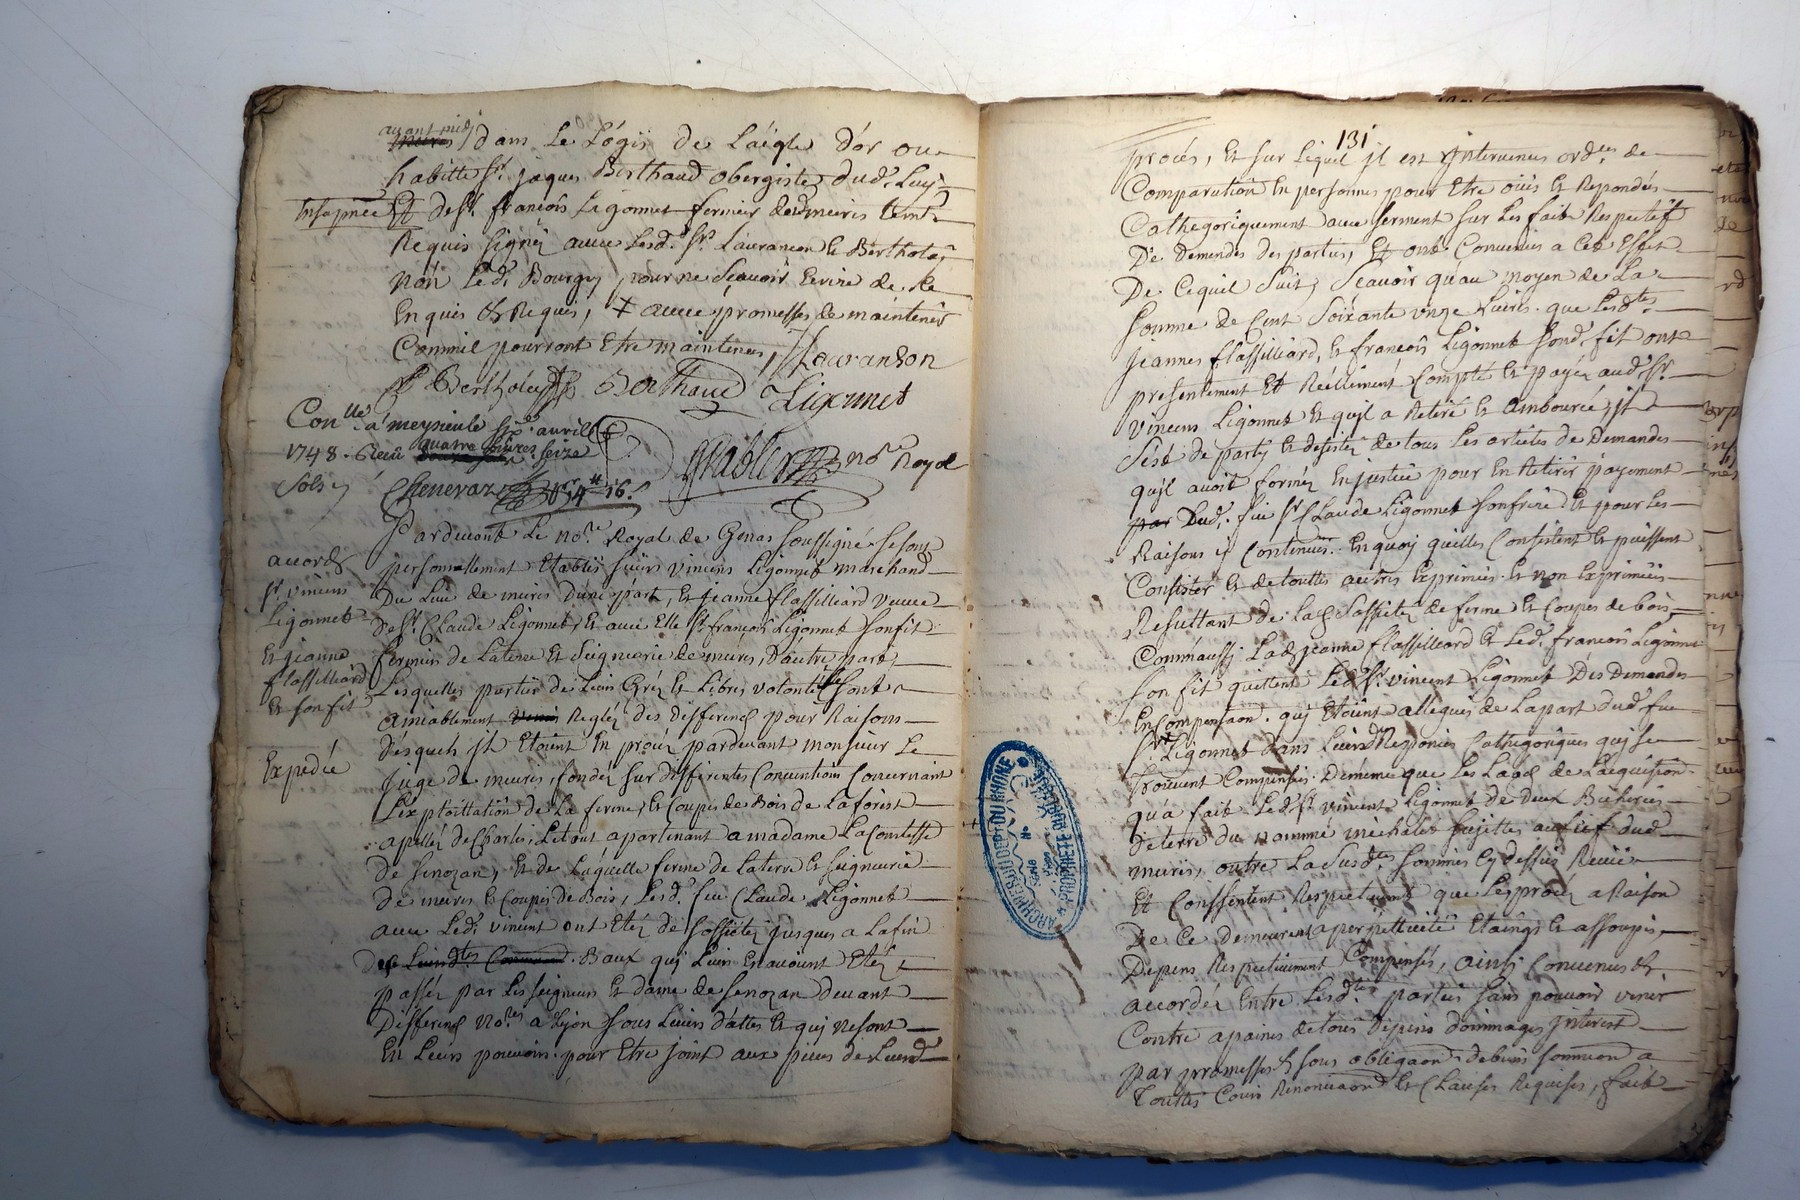 avant midy
dans Le Logis de Laigle dor ou
habitte Sr. jaques Berthaud obergiste dud. Lieu
et de Sr. francois Ligonnet fermier de meiris temt
Requis signés avec Lesd. Srs. Laurancon & Bertholet
non Led. Bourgey pour ne Scavoir Ecrire de ce
Enquis & Requis, + avec promesses de maintenir
Comme pourront Etre maintenus, Lauranson
Bertholet Berthaud Ligonnet
Conllé. a meyzieule six avrill
1748. Reçu quatre Livres Seize
Sols
Chenevaz 4# 16s
nore Royal
Pardevant Le nore. Royal de Genas soussigné se sont
personnellement Etablis sieurs vincent Ligonnet marchand
Du Lieu de meiris dune part, et jeanne flassilliard veuve
de Sr. Claude Ligonnet, et avec Elle Sr. francois Ligonnet son fit
fermiers de La terre et Seigneurie de meiris, dautre part
Lesquelles partie de Leur Gréz et Libres volonté se sont
amiablement Reglés des differends pour Raisons
desquels jl Etoient En procéz pardevant monsieur Le
juge de meiris, fondés sur differentes Conventions Concernant
Lexploittation de La ferme, et Coupes de Bois de La forest
apellée de Charles, Le tout apartenant a madame La Comtesse
de Senozan, et de Laquelle ferme de La terre et Seigneurie
de meiris et Coupes de Bois, Lesd. feu Claude Ligonnet
avec Led. vincent ont Etéz de Sossietéz jusques a La fin
des Baux quj Leurs En avoient Etéz
passéz par Les Seigneurs et dame de Senozan devant
Differends Nores a Lyon sous Leurs dattes Et quj ne sont
En Leurs pouvoirs pour Etre joint aux pieces de Leurd
accordz
Sr. vincent
Ligonnet
Et jeanne
flassilliard
et son fit
Expedié
131
procés, Et sur Lequel jl est jntervenus ordces de
Comparution En personnes pour Etre ouis et Repondes
Cathegoriquement avec serment sur Les faits Respectifs
De demendes des parties, Et ont Convenus a Cet Effet
De Ce quil Suit, Scavoir quau moyen de La
Somme de Cent Soixante onze Livres que Lesdtes
jeannes flassilliard, et francois Ligonnet Sond. fit ont
presentement Et Réellement Compté et payéz aud. Sr.
vincent Ligonnet et quj a Retiré et Embourcé, jl
Sest de party et desistéz de tous Les articles de Demandes
quil avoit forméz En justice pour En Retirer payement
par Dud. feu Sr. Claude Ligonnet son frere Et pour Les
Raisons y Contenues. En quoy quelles Consistent et puissent
Consister et de touttes autres Exprimées et non Exprimées
Resultant de La Sossietéz de ferme et Coupes de bois,
Comm'aussj Lad. jeanne flassilleard et Led. francois Ligonnet
son fit quittent Led. Sr. vincent Ligonnet Des Demandes
En Compensaon. quj Etoient allegués de La part dud. feu
Sr. Ligonnet dans Leurd. Reponces Cathegoriques quj se
trouvent Compensés. De meme que Les Laods de Laequisition
qua fait Led. Sr. vincent Ligonnet de Deux Bicherées
de terre du nommé michalet sujettes au fief dud
meiris, outre La Susdte. Somme Cy dessus Recue
Et Conssentent Respectivemt que Les procéz a Raison
De Ce demeurent a perpettuité Etaings et assoupis,
Depens Respectivement Compensés, ainsy Convenus &
accordés Entre Lesdtes. parties sans pouvoir venir
Contre a paines de tous depens dommages jnterest
par promesses & sous obligaon de biens soumion a
Touttes Cours Renonciaon et Clauses Requises, fait
ARCHIVES DU DEPT DU RHONE